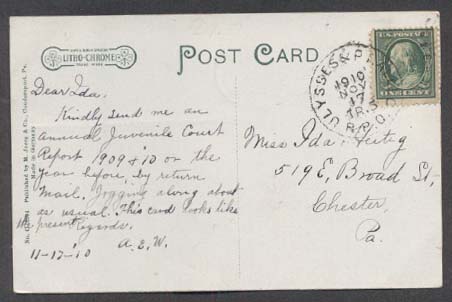 LITHO-CHROME
TRADE MARK
POST CARD
Dear Ida.
Kindly send me an
Annual Juvenile Court
Report 1909 & 10 or the
year before, by return
Mail. Jogging along about
as usual. This card looks like
the present. Regards.
A.E.W.
11-17-10
Miss Ida
519 E, Broad St,
Chester,
Pa.
ULYSSES &
1910
NOV
17
R.P.O.
U.S. POSTAGE
ONE CENT
Published by M. & Co., Coudersport, Pa.
Made in Germany